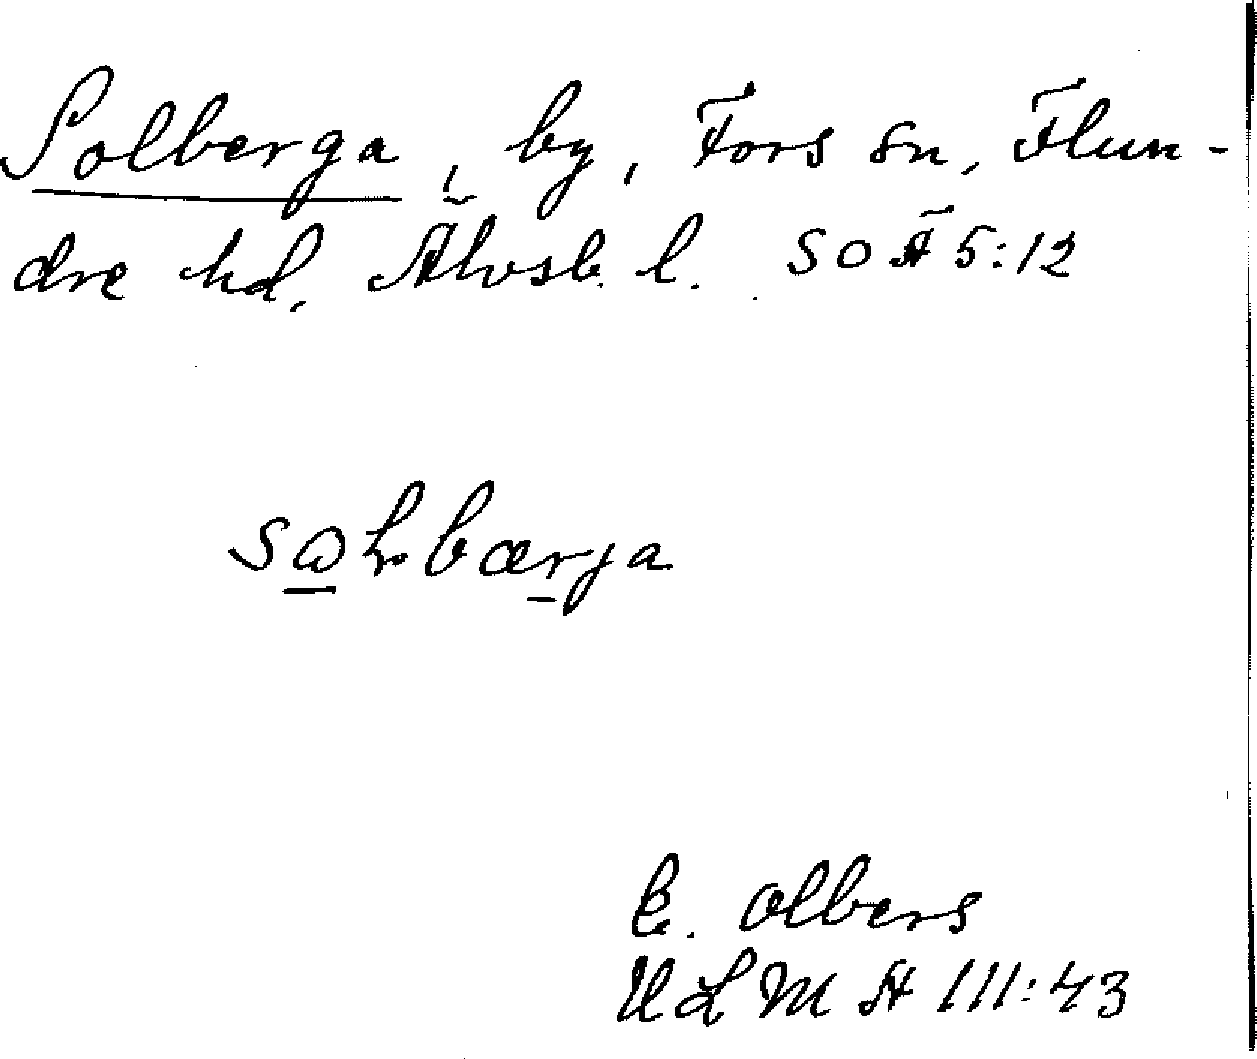 Solberga, by, Fors sn, Flun-
dre hd, Älvsb. l. SOÄ 5:12
E. Olbers
ULMA 111:43